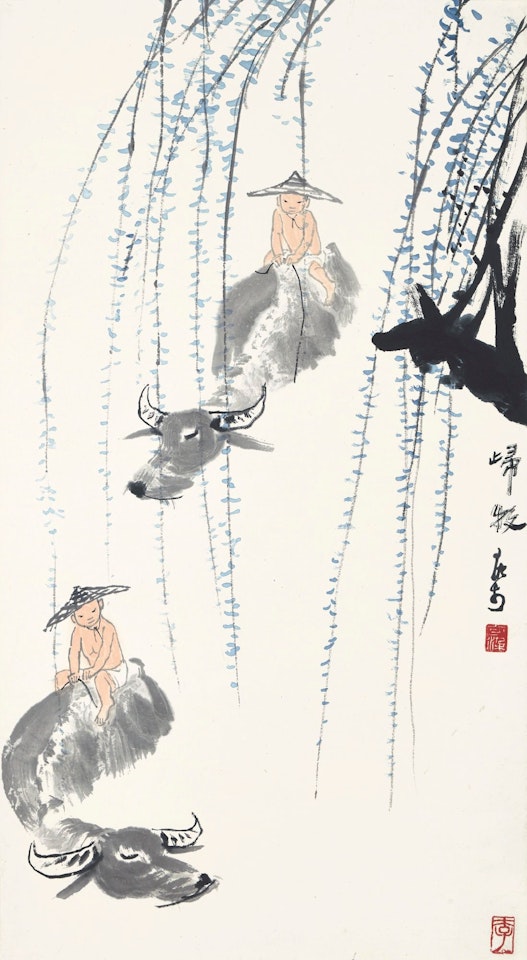 歸牧 可染
李